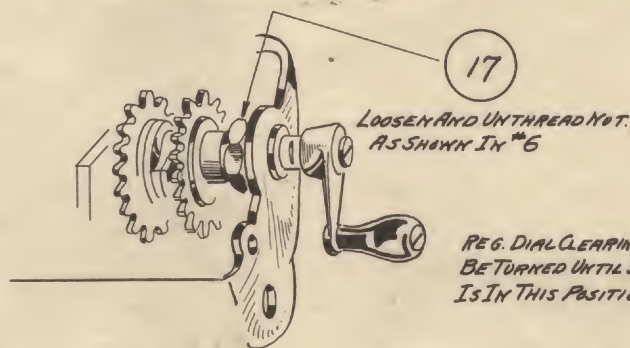 17
LOOSEN AND UNTHREAD NUT.
AS SHOWN IN #6
REG. DIAL
BE TURNED UNTIL
IS IN THIS